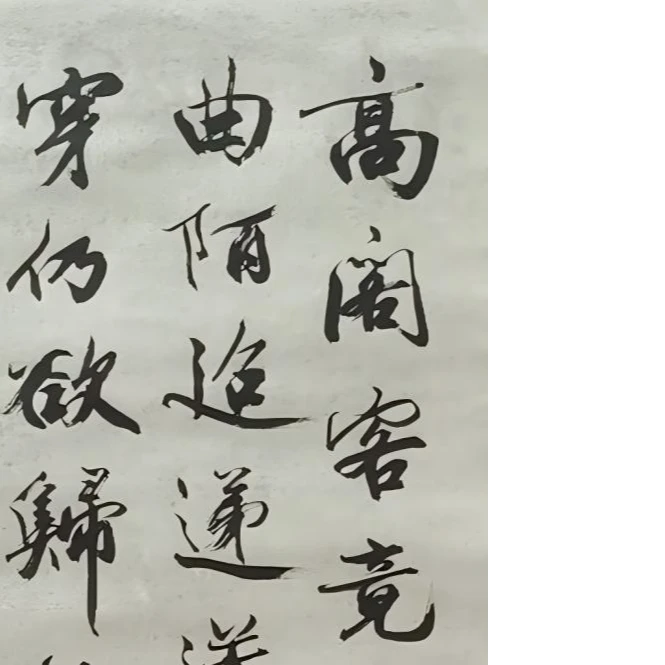 高閣客竟
曲陌迢遞送
穿仍欲歸